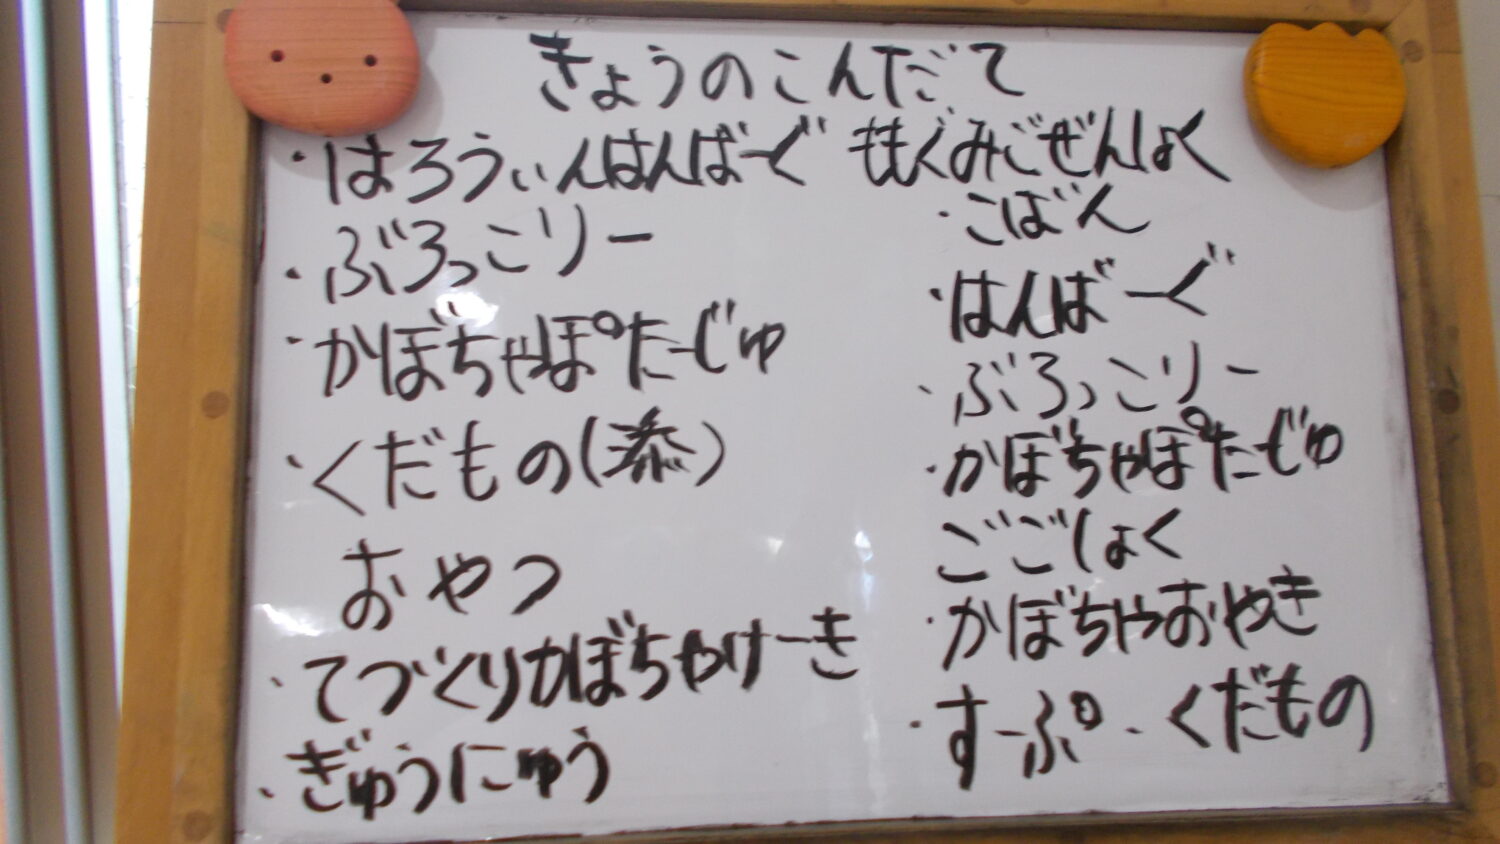 きょうのこんだて
・はろうぃんはんばーぐ
・ぶろっこりー
・かぼちゃぽたーじゅ
・くだもの()
おやつ
・てづくりかぼちゃけーき
・ぎゅうにゅう
ももぐみごぜんしょく
・こばん
・はんばーぐ
・ぶろっこりー
・かぼちゃぽたーじゅ
ごごしょく
・かぼちゃおやき
・すーぷ・くだもの